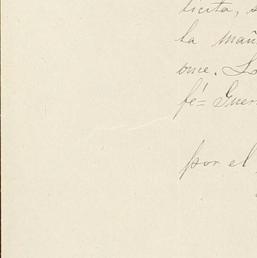 licita, s
la mañ
once. Lo
fé= Guer
por el